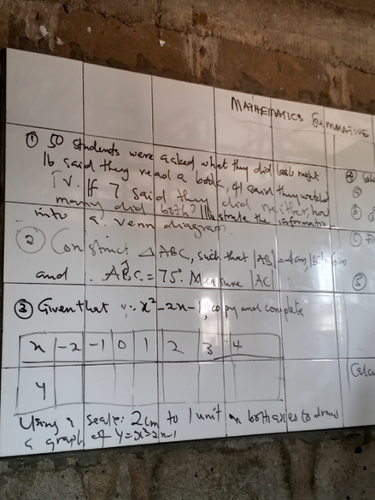 MATHEMATICS SUMMATIVE
① 50 students were asked what they did last night
16 said they read a book, 41 said they watched
TV. If 7 said they did neither, how
many did both? Illustrate the information
into a venn diagram.
② Construct △ ABC, such that |AB| = 4cm,
and AB̂C = 75°. Measure |AC|
③ Given that y = x² - 2x - 1, copy and complete
x -2 -1 0 1 2 3 4
y
Using a scale: 2cm to 1 unit on both axes to draw
a graph of y = x² - 2x - 1